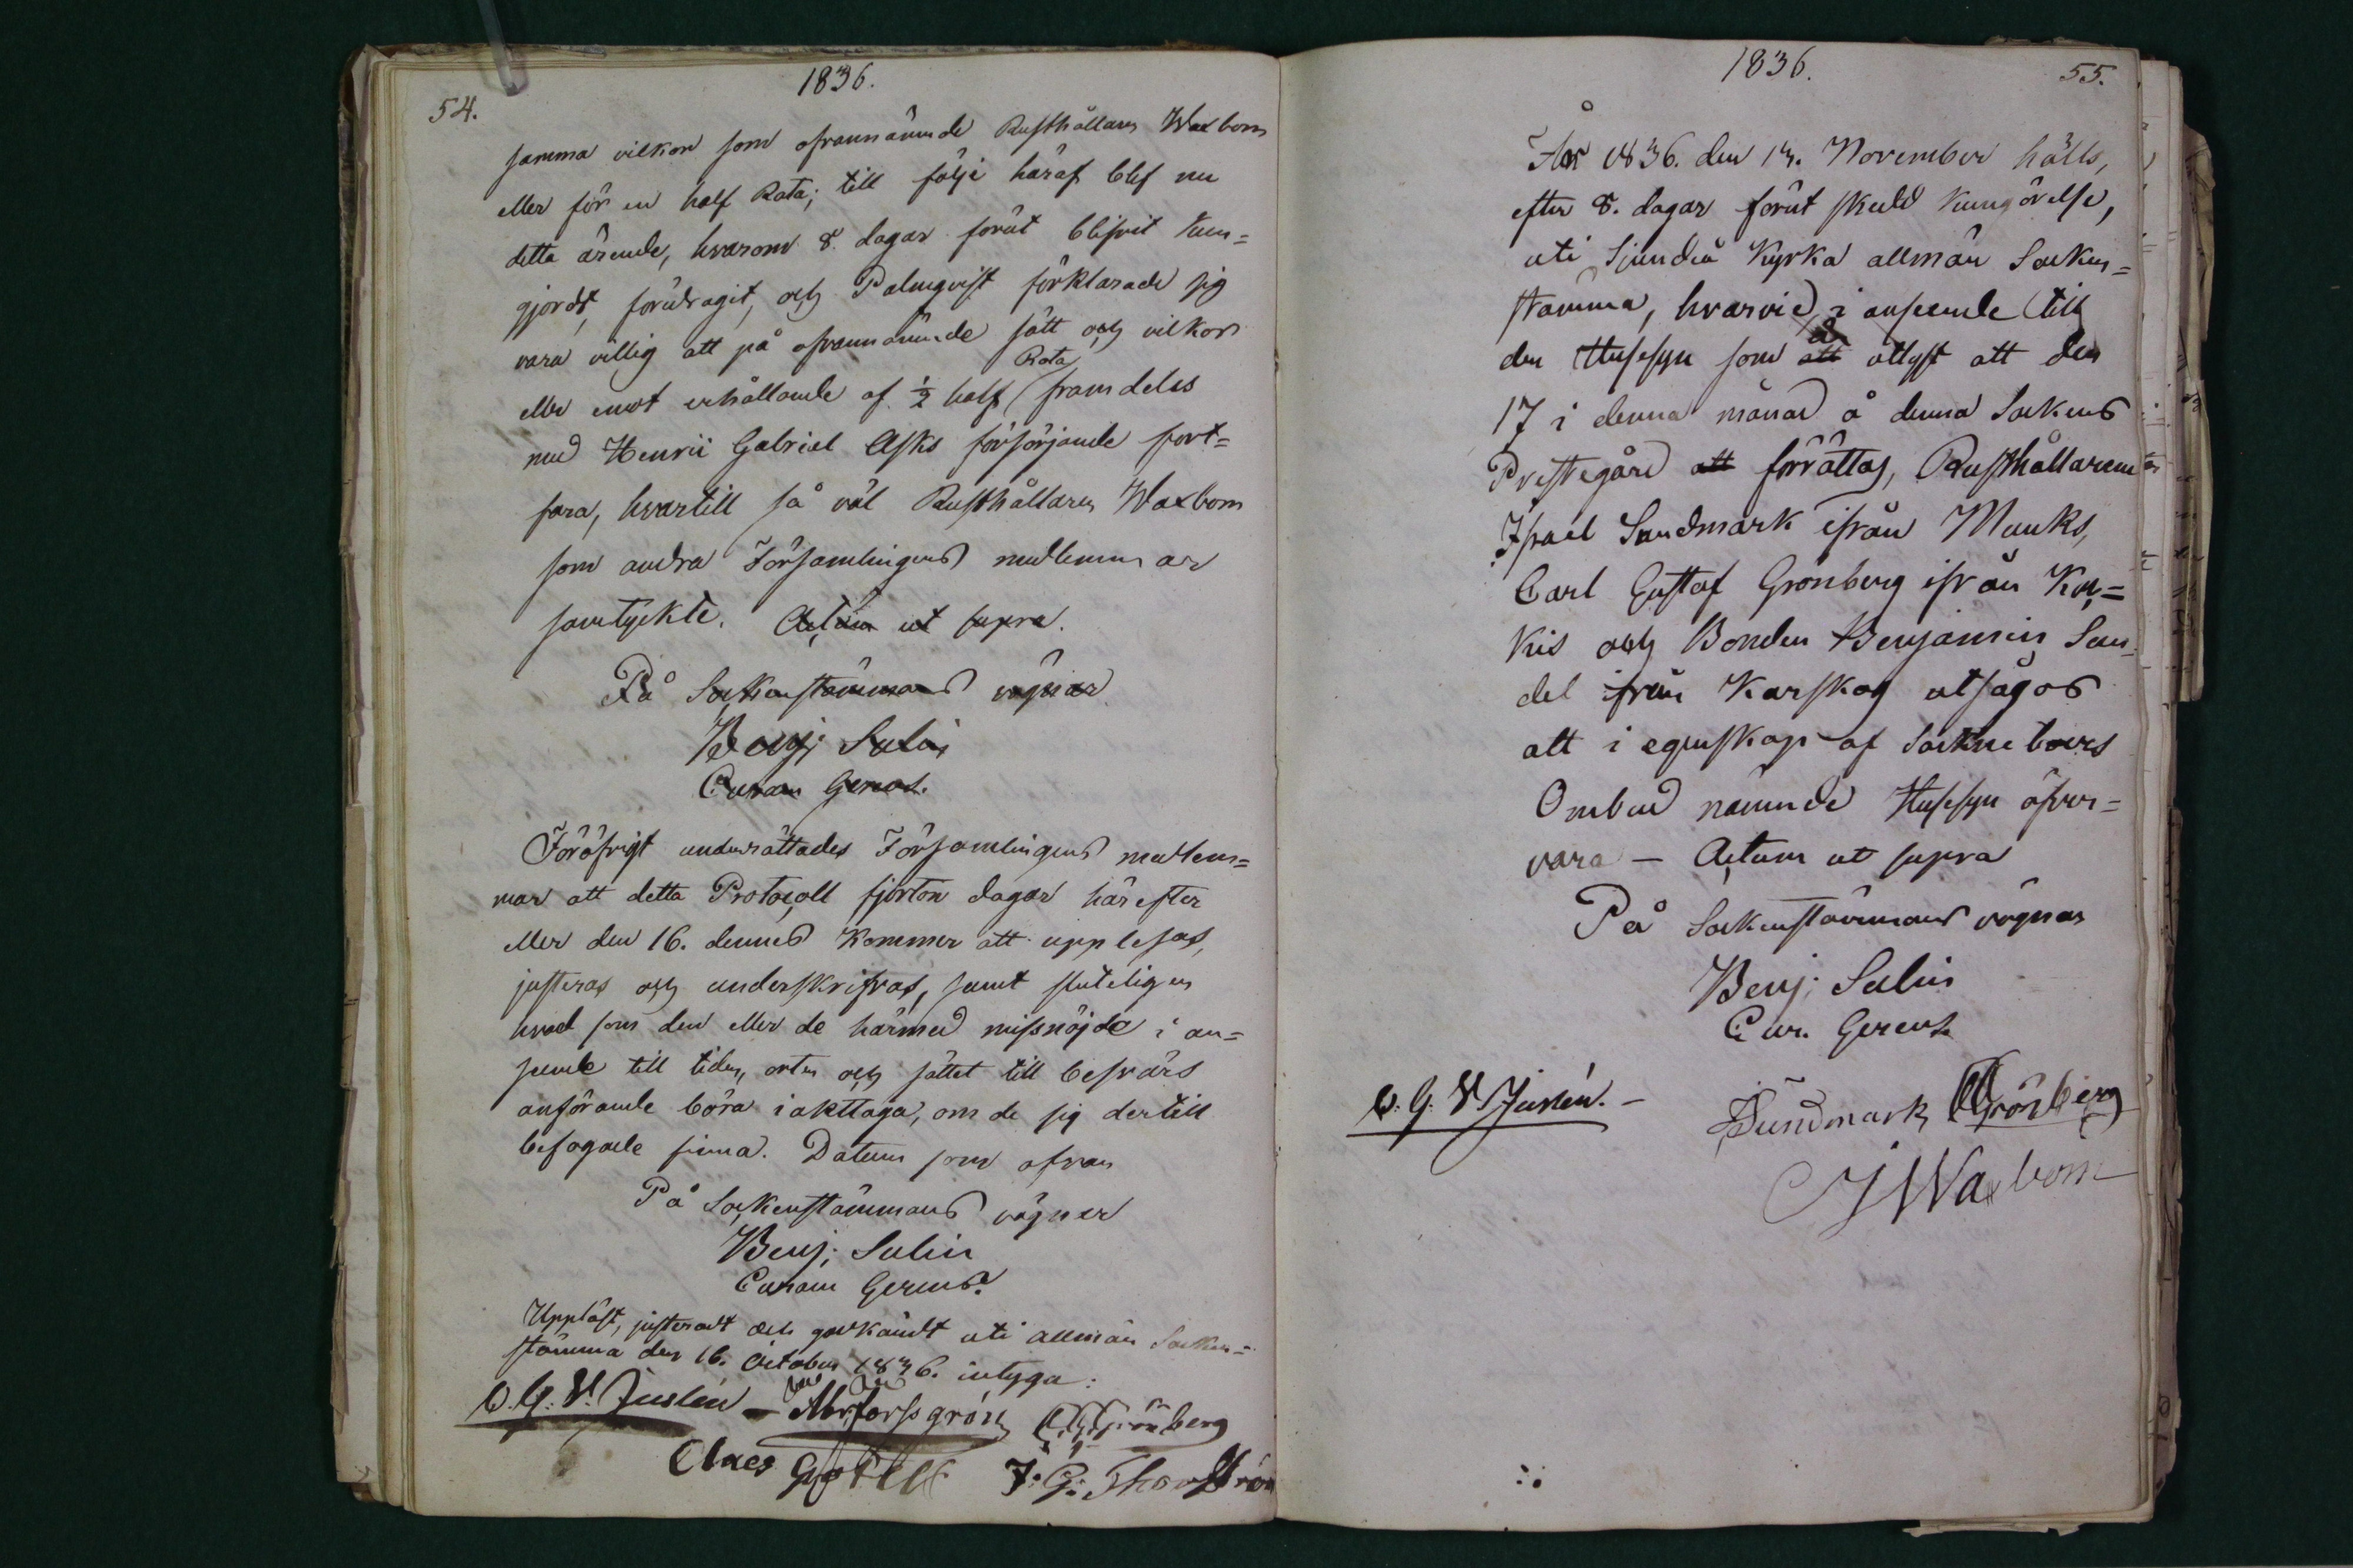 54.
1836.
samma vilkor som ofvannämnde Rusthållaren Waxbom
eller för en half Rota; till följe häraf blef nu
detta ärende, hvarom 8. dagar förut blifvit kun=
gjordt, föredragit, och Palmqvist förklarade sig
vara villig att på ofvannämnde sätt och vilkor
Rota
eller emot erhållande af ½ half framdeles
med Henric Gabriel Asks försörjande fort=
fara, hvartill så väl Rusthållaren Waxbom
som andra Församlingens medlemmar
samtyckte. Actum ut supra.
På Sockenstämmans vägnar
Benj; Salin
Curam Gerens.
Föröfrigt underrättades Församlingens medlem=
mar att detta Protocoll fjorton dagar härefter
eller den 16. dennes kommer att uppläsas,
justeras och underskrifvas, samt sluteligen
hvad som den eller de härmed missnöjde i an=
seende till tiden, orten och sättet till besvärs
anförande böra iakttaga, om de sig dertill
befogade finna. Datum som ofvan
På Sockenstämmans vägnar
Benj; Salin
Curam Gerens.
Uppläst, justeradt och godkändt uti allmän Socken=
stämma den 16. October 1836. intyga:
C. G. V. Juslén — Morforssgrön CGGrönberg
Claes J: G: Thorström
1836.
55.
År 1836. den 13. November hölls,
efter 8. dagar förut skedd kungörelse,
uti Sjundeå Kyrka allmän Socken=
stämma, hvarvid, i anseende till
är
den Husesyn som att utlyst att den
17 i denna månad å denna Sockens
Prestegård att förrättas, Rusthållarene
Israel Sundmark ifrån Munks,
Carl Gustaf Grönberg ifrån Ky,=
kis och Bonden Benjamin Sun=
del ifrån Karskog utsågos
att i egenskap af Sockneboers
Ombud nämnde Husesyn öfver=
vara — Actum ut supra
På Sockenstämmans vägnar
Benj; Salin
Cur. Gerens
C. G. V. Juslén. —
ISundmark CGGrönberg
JWaxbom